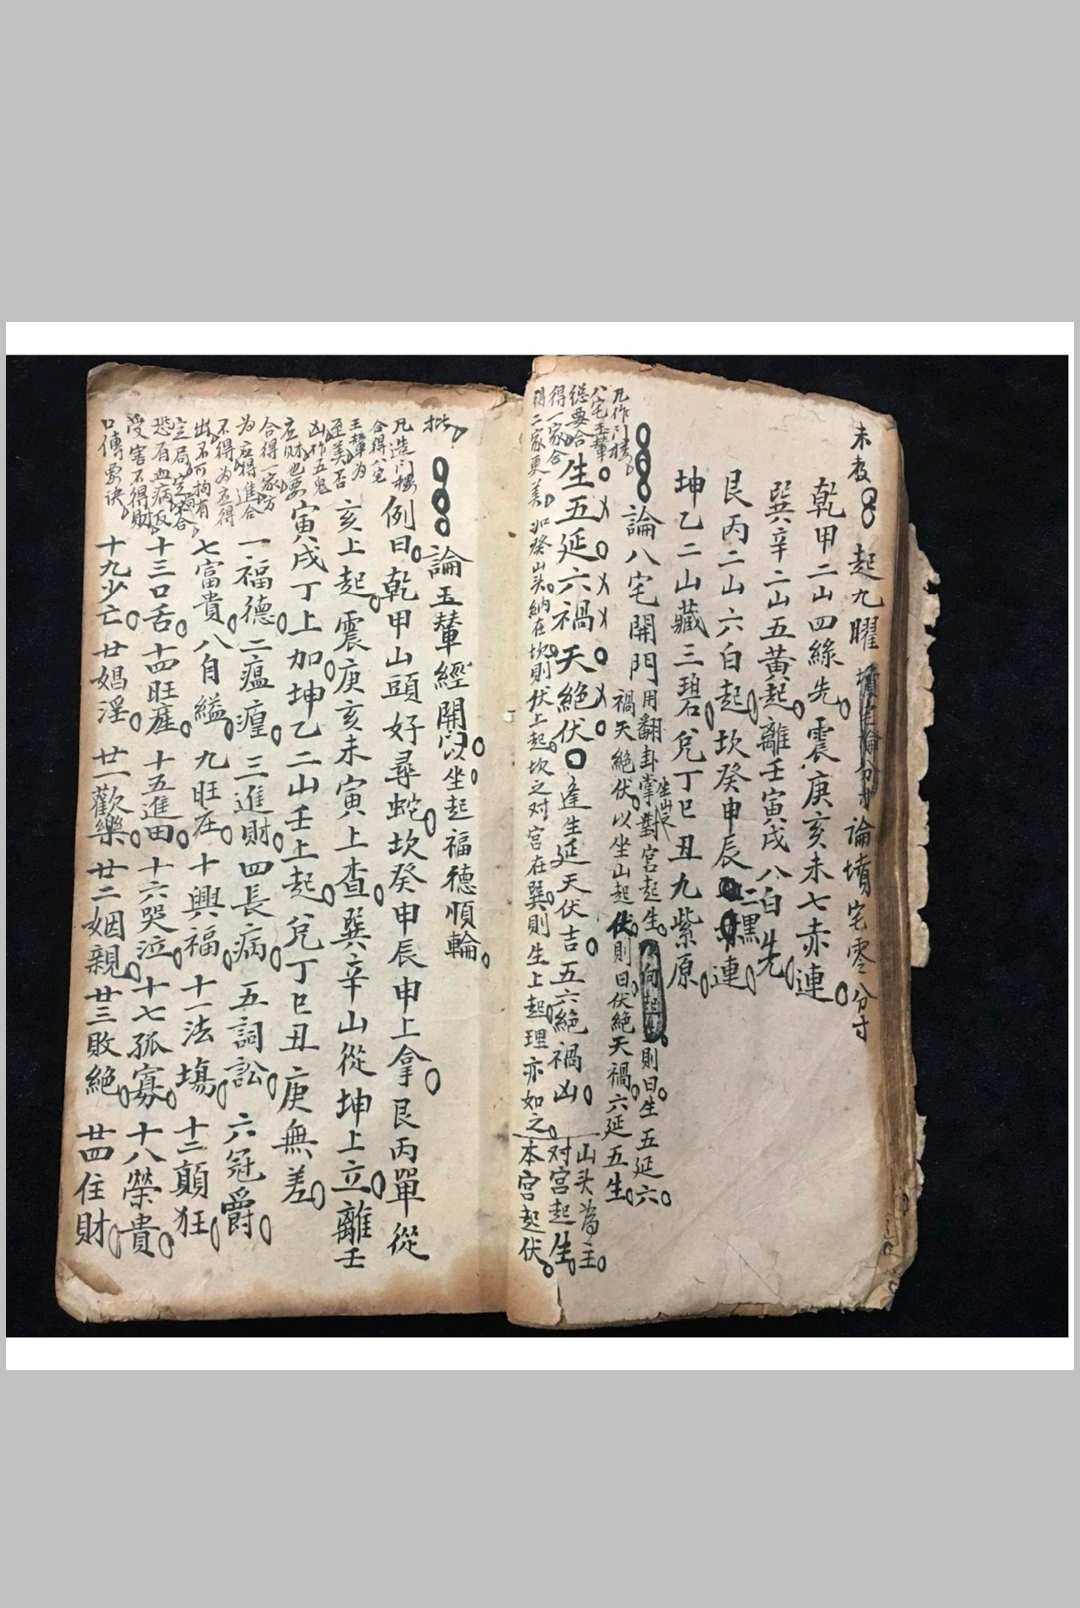 未裝 起九曜 論墳宅零分寸
乾甲二山四綠先震庚亥未七赤連
巽辛二山五黃起離壬寅戌八白先
艮丙二山六白起坎癸申辰二黑連
坤乙二山藏三碧兌丁巳丑九紫原
論八宅開門用翻卦掌對宮起生坐山是則曰生五延六
禍天絕伏以坐山起伏則曰伏絕天禍六延五生
凡作门楼
八宅玉輦
總要合
得一家合
得二家更美
生五延六禍天絕伏 逢生延天伏吉五六絕禍凶
如癸山头納在坎則伏上起坎之对宮在巽則生上起理亦如之
山头為主
对宮起生
本宮起伏
批
論玉輦經開门坐起福德順輪
凡造门楼
合得八宅
玉輦为
至美否
凶作五鬼
庄財也要
合得一家方
为庄得進合
不得为庄得
出不可拘有
定局
恐有血病反
受害不得財
口傳要诀
例曰乾甲山頭好尋蛇坎癸申辰申上拿艮丙單從
亥上起震庚亥未寅上查巽辛山從坤上立離壬
寅戌丁上加坤乙二山壬上起兌丁巳丑庚無差
一福德二瘟㾮三進財四長病五詞訟六冠爵
七富貴八自縊九旺庄十興福十一法塲十二顛狂
十三口舌十四旺蚕十五進田十六哭泣十七孤寡十八榮貴
十九少亡廿娼淫廿一歡樂廿二姻親廿三敗絕廿四住財